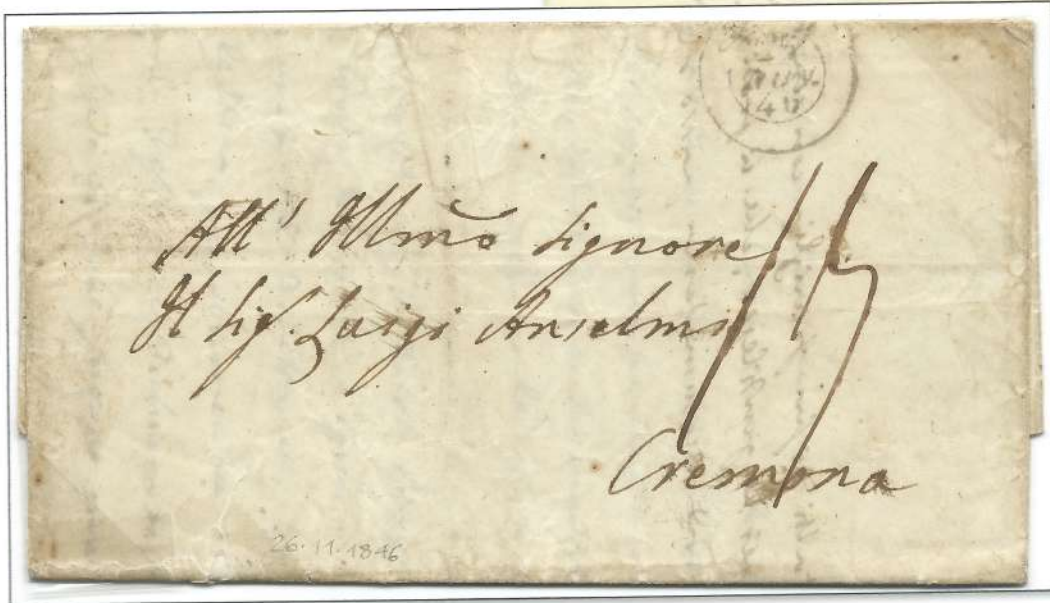 All' Illmo Signore
Il Sigr. Luigi Anselmi
Cremona
26.11.1846